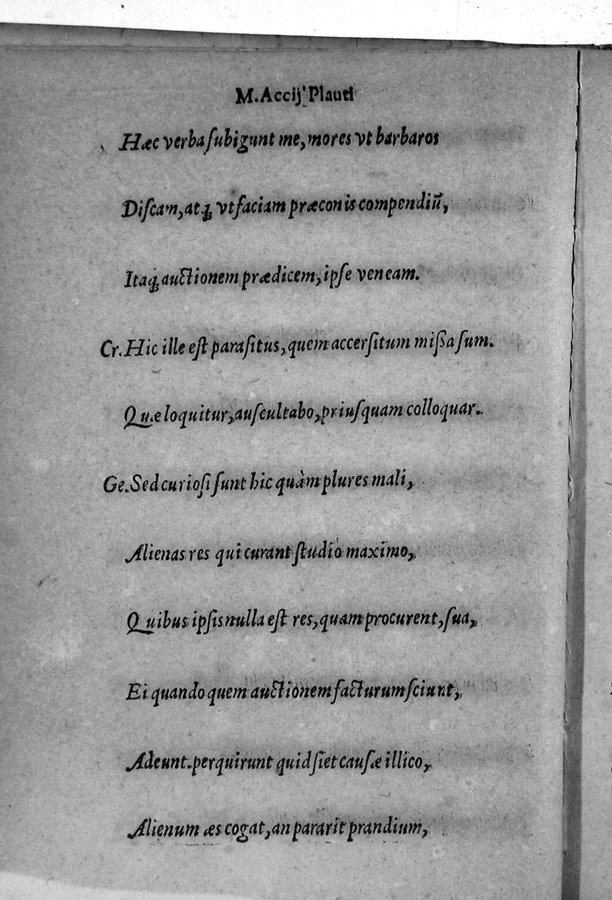 M. Accij Plauti
Hæc verba ſubigunt me, mores vt barbaros
Diſcam, atq; vt faciam præconis compendiū,
Itaq; auctionem prædicem, ipſe veneam.
Cr. Hic ille eſt paraſitus, quem accerſitum miſſa ſum.
Quæ loquitur, auſcultabo, priuſquam colloquar.
Ge. Sed curioſi ſunt hic quàm plures mali,
Alienas res qui curant ſtudio maximo,
Quibus ipſis nulla eſt res, quam procurent, ſua,
Ei quando quem auctionem facturum ſciunt,
Adeunt. perquirunt quid ſiet cauſæ illico,
Alienum æs cogat, an pararit prandium,